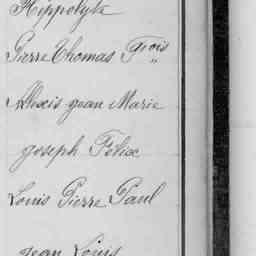 Hippolyte
Pierre Thomas Fçois
"
Alexis Jean Marie
Joseph Félix
Louis Pierre Paul
Jean Louis